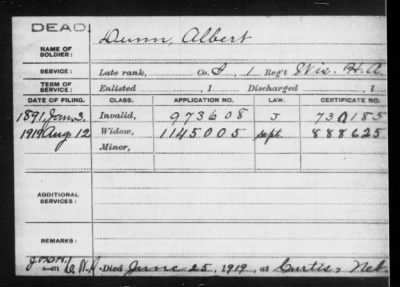 DEAD
NAME OF SOLDIER: Dunn, Albert
SERVICE: Late rank, Co. I, 1 Reg't Wis. H.A.
TERM OF SERVICE: Enlisted , 1 Discharged , 1
DATE OF FILING. CLASS. APPLICATION NO. LAW. CERTIFICATE NO.
1891, Jan. 3. Invalid, 973608 J 730185
1919 Aug 12 Widow, 1145005 Sept. 888625
Minor,
ADDITIONAL SERVICES:
REMARKS:
C. N. Died June 25, 1919, at Curtis, Neb.